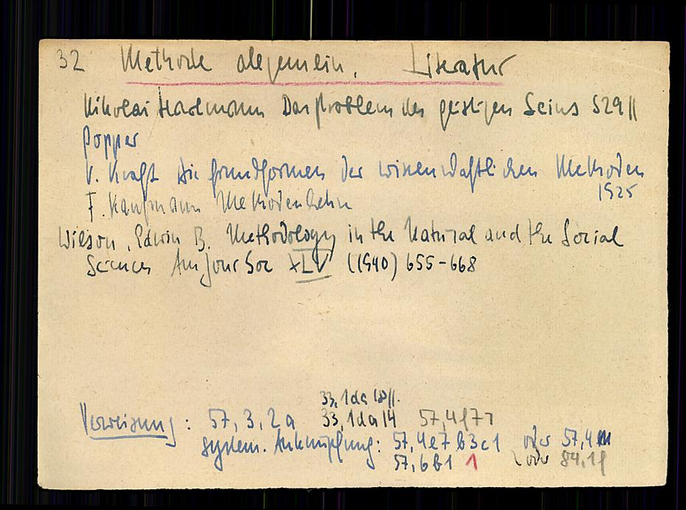 32 Methode allgemein. Literatur
Nikolai Hartmann Das Problem des geistigen Seins S29ff
Popper
V. Kraft Die Grundformen der wissenschaftlichen Methoden
1925
F. Kaufmann Methodenlehre
Wilson, Edwin B. Methodology in the Natural and the Social
Sciences Am Jour Soc XLV (1940) 655-668
33,1da18ff.
Verweisung: 57,3,2a 33,1da14 57,4f7
system. Anknüpfung: 57,4e7b3c1 oder 57,4m
57,6b1 1 oder 84,1f